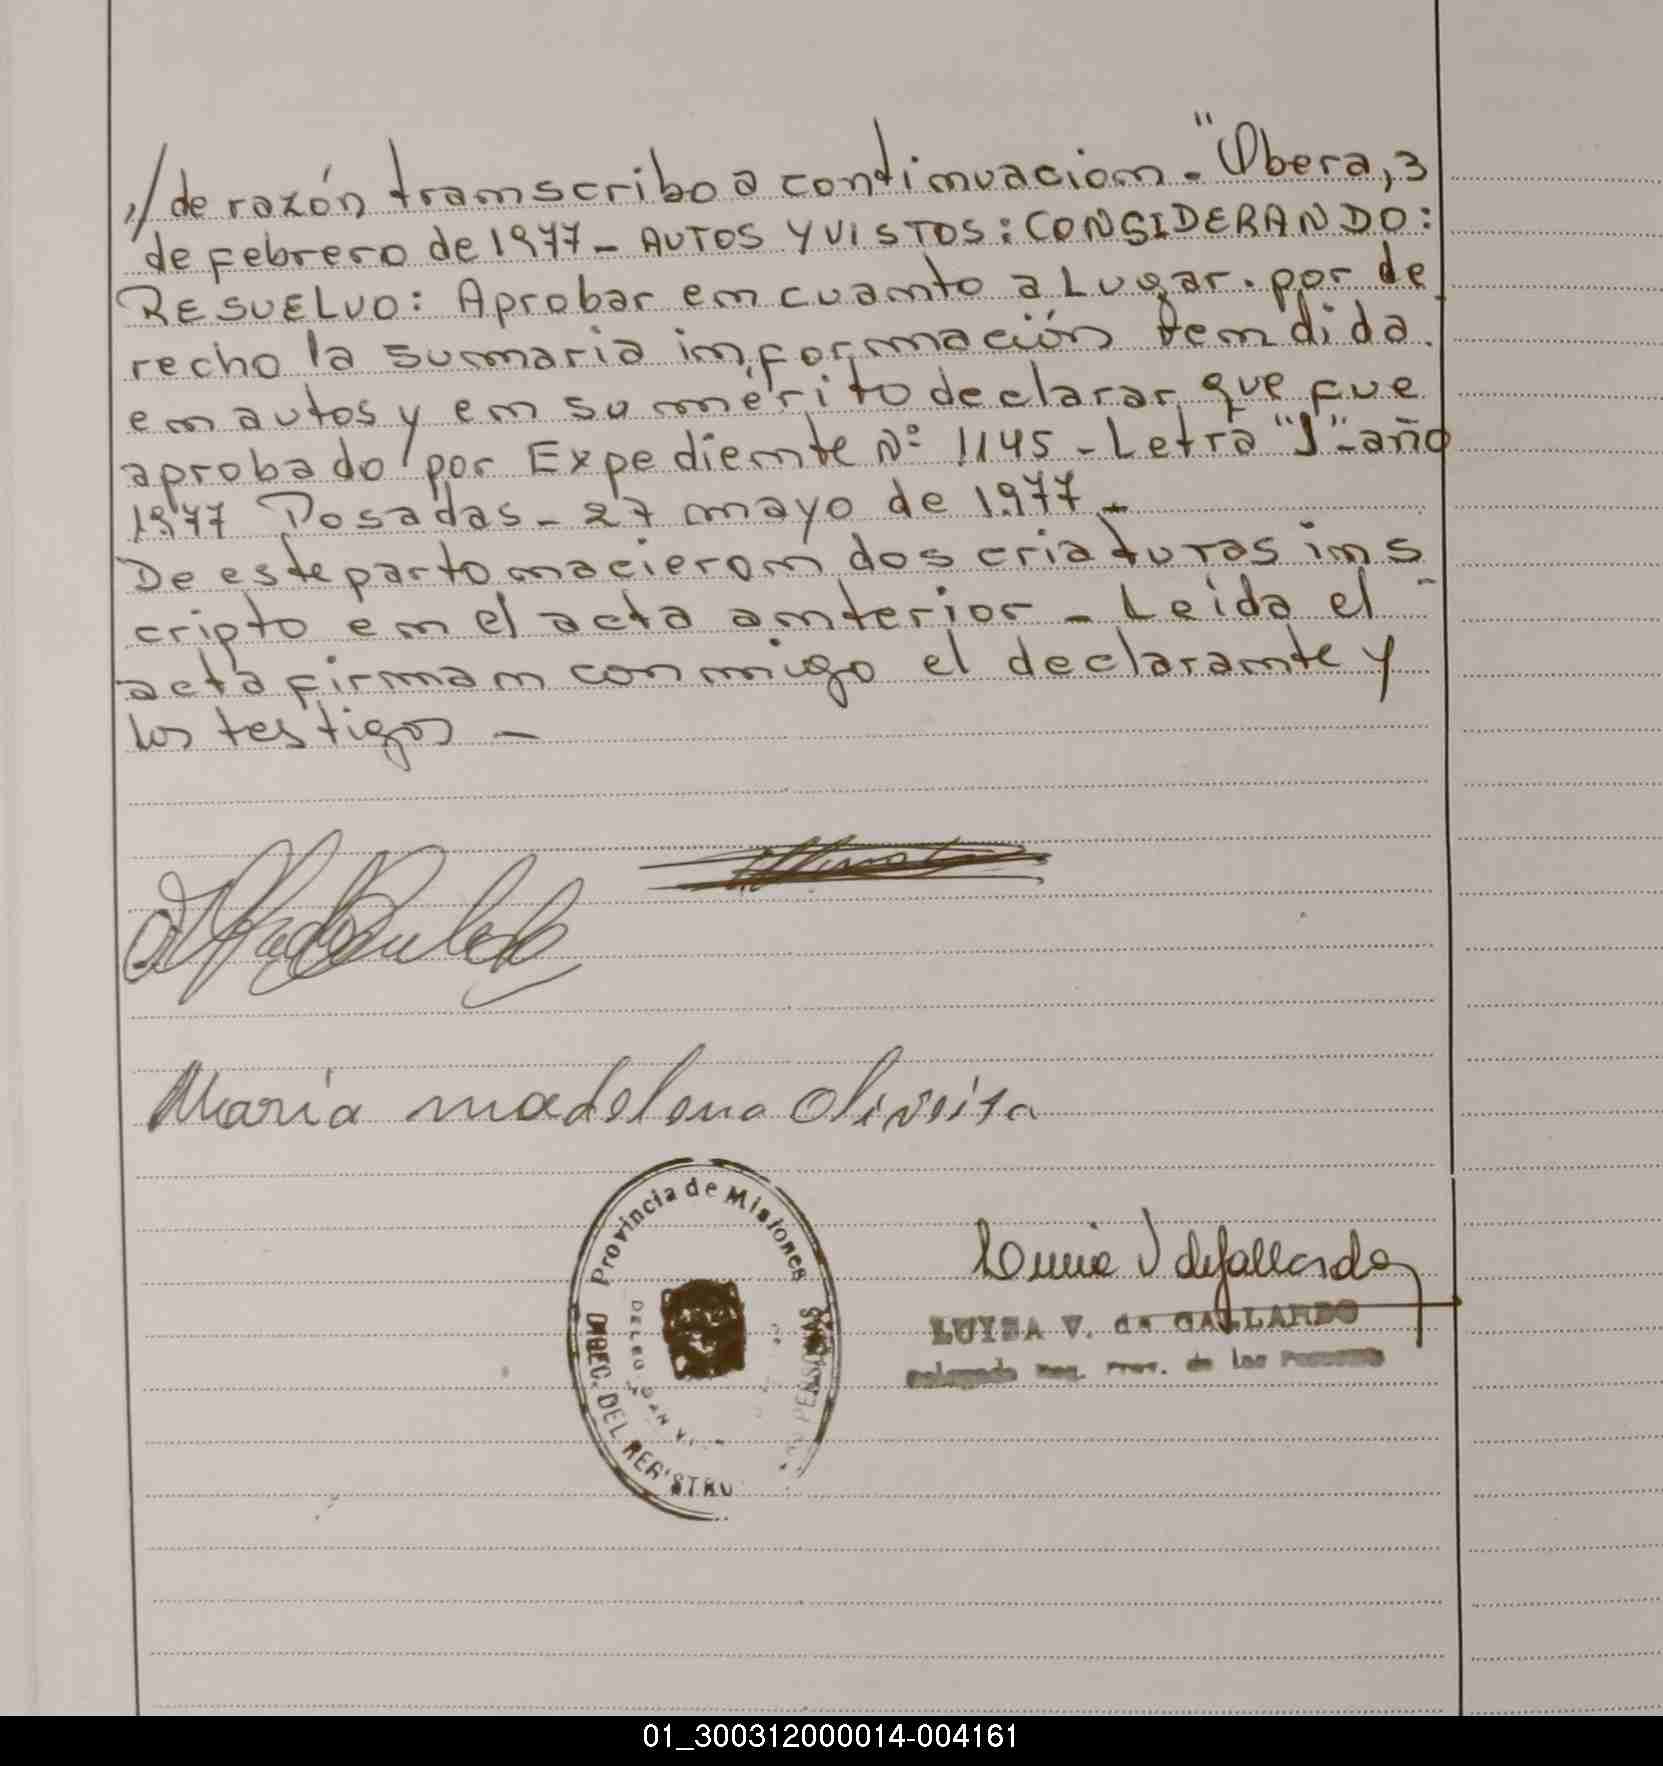 // de razón transcribo a continuacion.- "Obera, 3
de febrero de 1977 - AUTOS Y VISTOS: CONSIDERANDO:
RESUELVO: Aprobar en cuanto a Lugar. por de
recho la sumaria información rendida.
en autos y en su mérito declarar, que fue
aprobado por Expediente Nº 1145 - Letra "J"-año
1977 Posadas - 27 mayo de 1977 -
De este parto nacieron dos criaturas ins
cripto en el acta anterior - Leída el
acta firman conmigo el declarante y
los testigos -
María madelena oliveira
Provincia de Misiones
DIREC. DEL REGISTRO PERSONAS
Luisa V de Gallardo
LUISA V. de GALLARDO
Delegada Reg. Prov. de las Personas
01_300312000014-004161